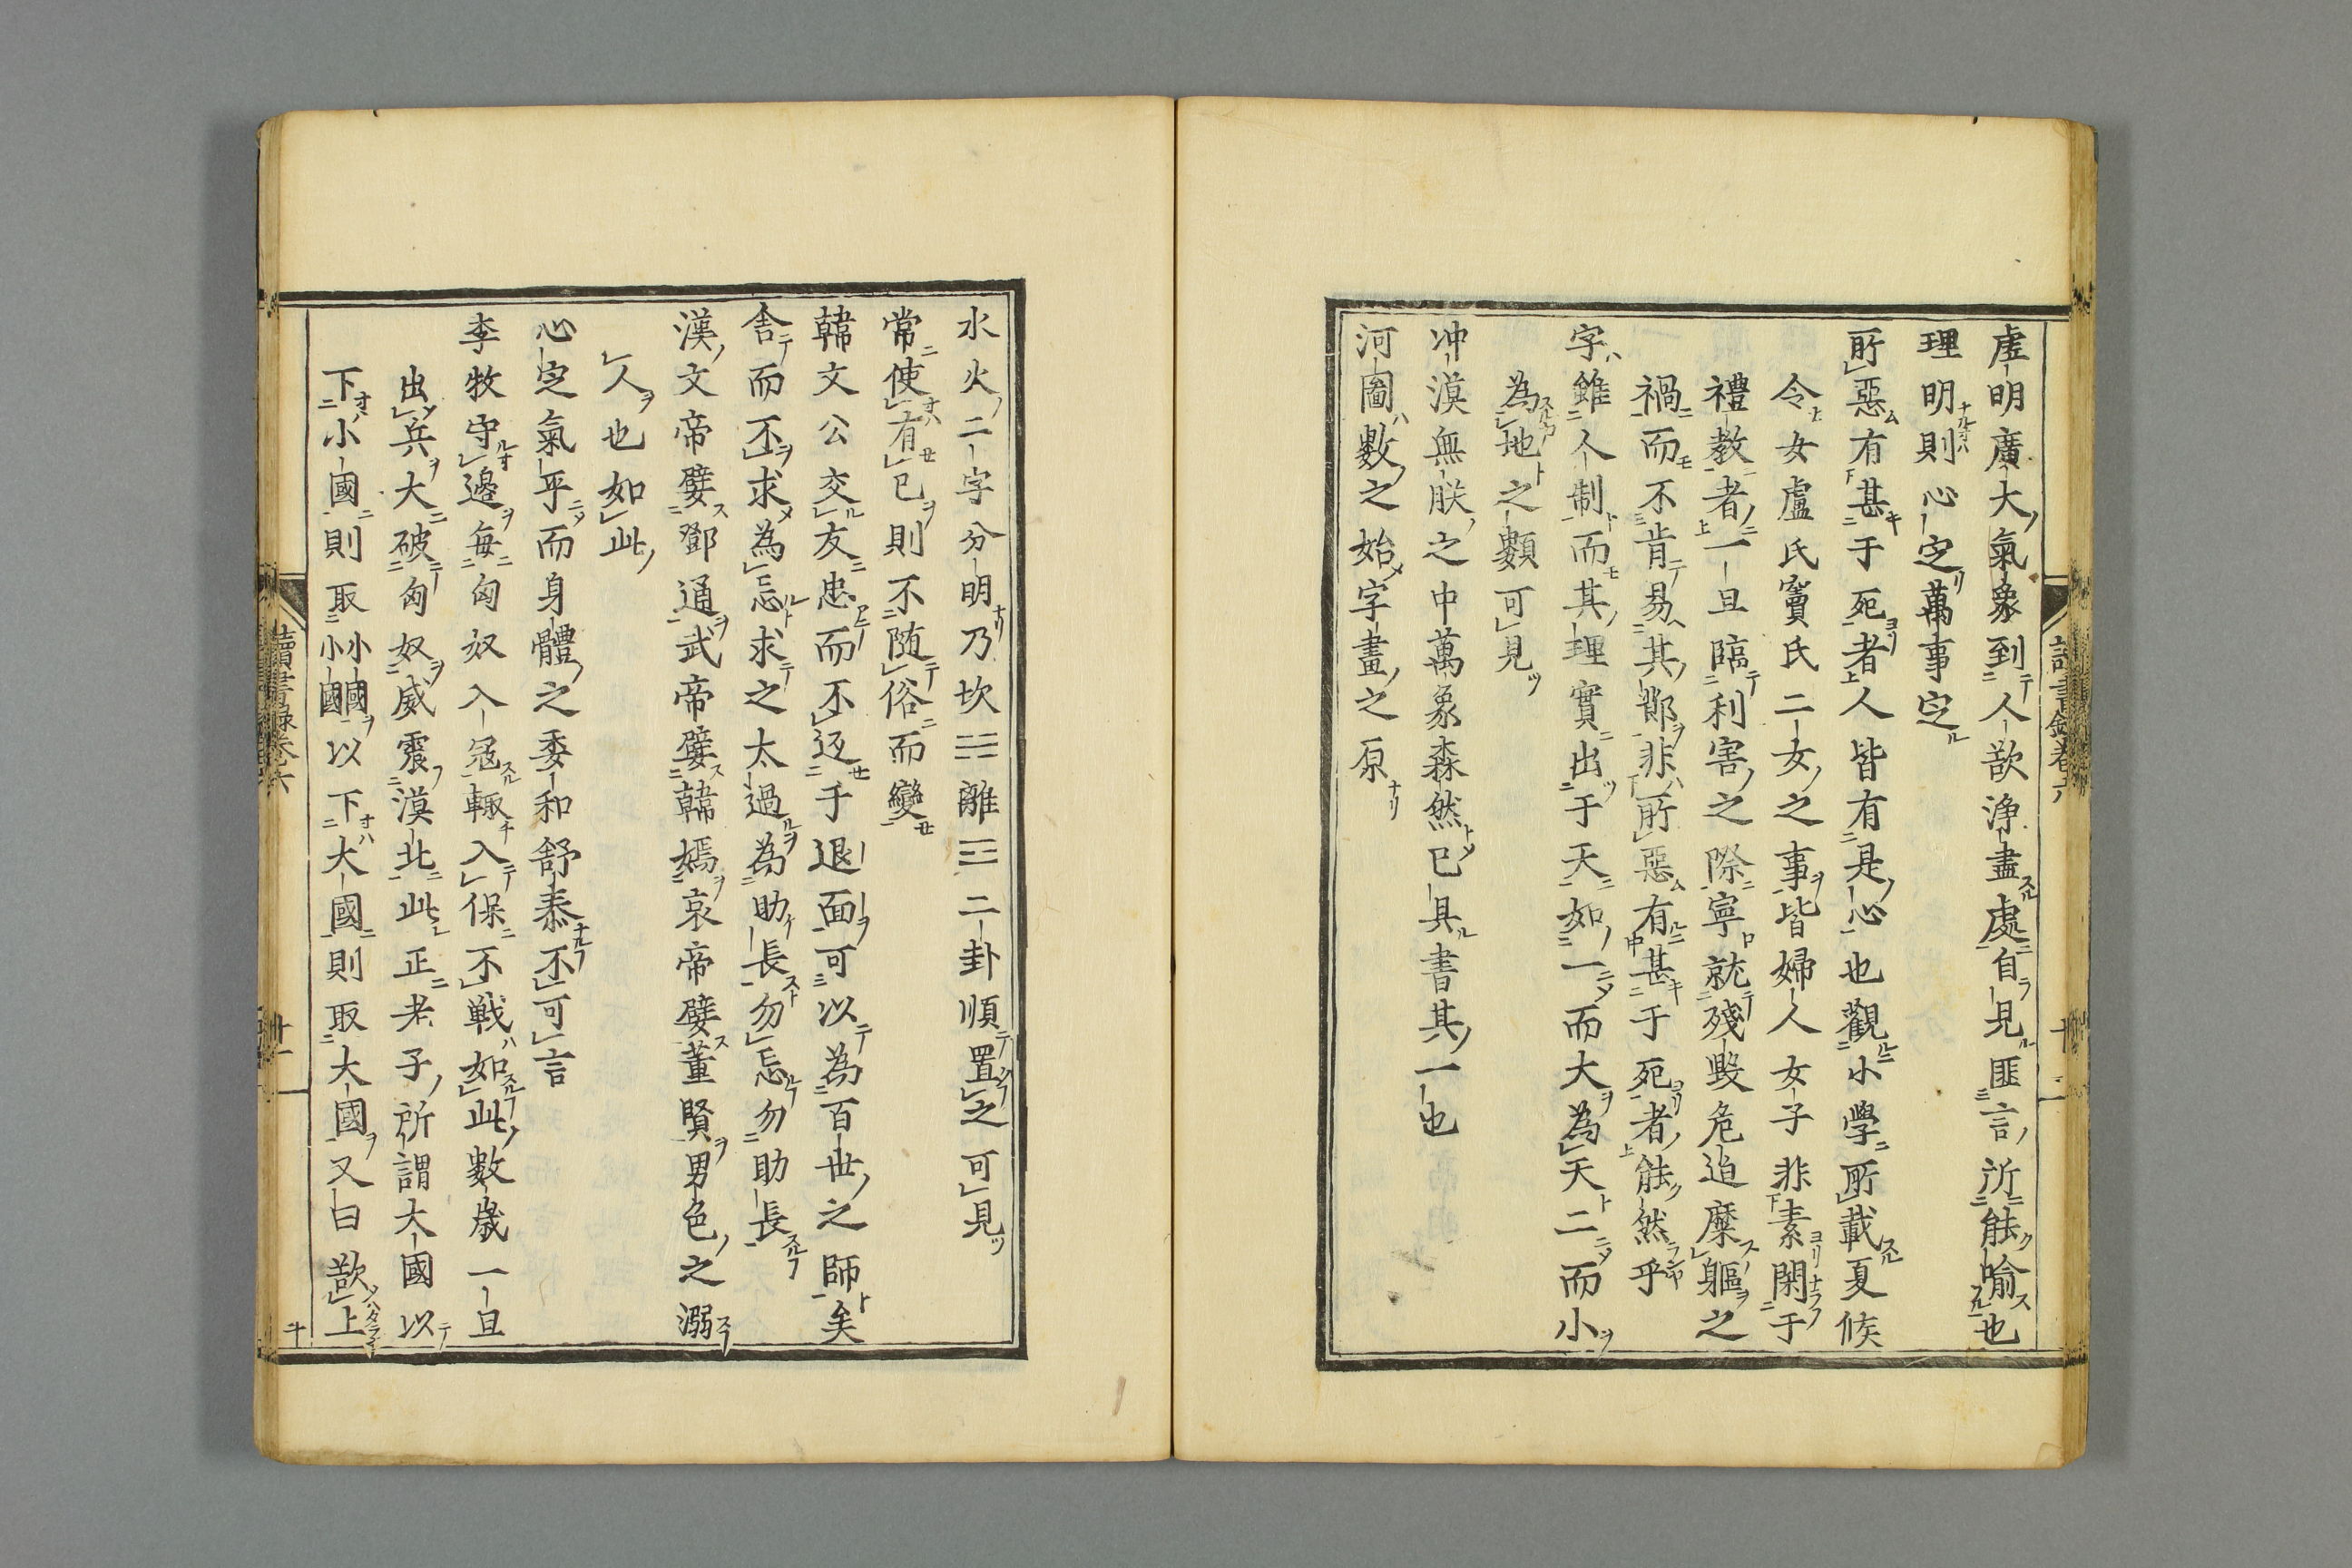 虚明廣大氣象到人欲浄盡處自見匪言所能喻也
理明則心定萬事定
所惡有甚于死者人皆有是心也觀小學所載夏侯
令女盧氏竇氏二女之事皆婦人女子非素閑于
禮教者一旦臨利害之際寧就殘毀危迫糜軀之
禍而不肯易其節非所惡有甚于死者能然乎
字雖人制而其理實出于天如一而大為天二而小
為地之類可見
冲漠無朕之中萬象森然已具書其一也
河圖數之始字畫之原
水火二字分明乃坎☵離☲二卦順置之可見
常使有已則不随俗而變
韓文公交友忠而不返于退面可以為百世之師矣
舎而不求為忘求之太過為助長勿忘勿助長
漢文帝嬖鄧通武帝嬖韓嫣哀帝嬖董賢男色之溺
人也如此
心定氣平而身體之委和舒泰不可言
李牧守邊毎匈奴入冦輙入保不戦如此數歳一旦
出兵大破匈奴威震漠北此正老子所謂大國以
下小國則取小國小國以下大國則取大國又曰欲上
讀書録巻六
十一